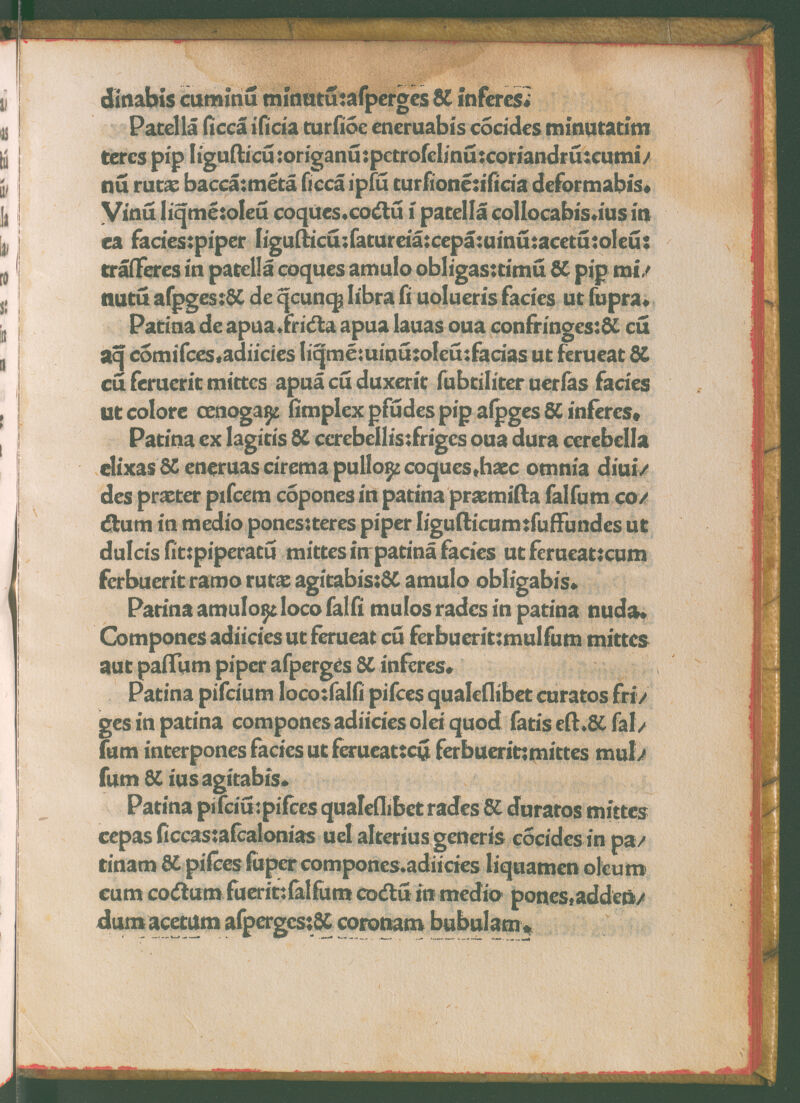 dinabis cuminū minutū:aſperges & inferes.
Patellā ſiccā iſicia turſiōe eneruabis cōcides minutatim
teres pip liguſticū:origanū:petroſelinū:coriandrū:cumi/
nū rutæ baccā:mētā ſiccā ipſū turſionē:iſicia deformabis.
Vinū liq̄mē:oleū coques.coctū ī patellā collocabis.ius in
ea facies:piper liguſticū:ſatureiā:cepā:uinū:acetū:oleū:
trāſſeres in patellā coques amulo obligas:timū & pip mi/
nutū aſpges:& de q̄cunqꝫ libra ſi uolueris facies ut ſupra.
Patina de apua.fricta apua lauas oua confringes:& cū
aq̄ cōmiſces.adiicies liq̄mē:uinū:oleū:facias ut ferueat &
cū feruerit mittes apuā cū duxerit ſubtiliter uerſas facies
ut colore œnogaꝝ ſimplex pfūdes pip aſpges & inferes.
Patina ex lagitis & cerebellis:friges oua dura cerebella
elixas & eneruas cirema pulloꝝ coques.hæc omnia diui/
des præter piſcem cōpones in patina præmiſta ſalſum co/
ctum in medio pones:teres piper liguſticum:ſuffundes ut
dulcis ſit:piperatū mittes in patinā facies ut ferueat:cum
ferbuerit ramo rutæ agitabis:& amulo obligabis.
Patina amuloꝝ loco ſalſi mulos rades in patina nuda.
Compones adiicies ut ferueat cū ferbuerit:mulſum mittes
aut paſſum piper aſperges & inferes.
Patina piſcium loco:ſalſi piſces qualeſlibet curatos fri/
ges in patina compones adiicies olei quod ſatis eſt.& ſal/
ſum interpones facies ut ferueat:cū ferbuerit:mittes mul/
ſum & ius agitabis.
Patina piſciū:piſces qualeſlibet rades & duratos mittes
cepas ſiccas:aſcalonias uel alterius generis cōcides in pa/
tinam & piſces ſuper compones.adiicies liquamen oleum
cum coctum fuerit:ſalſum coctū in medio pones.adden/
dum acetum aſperges:& coronam bubulam.